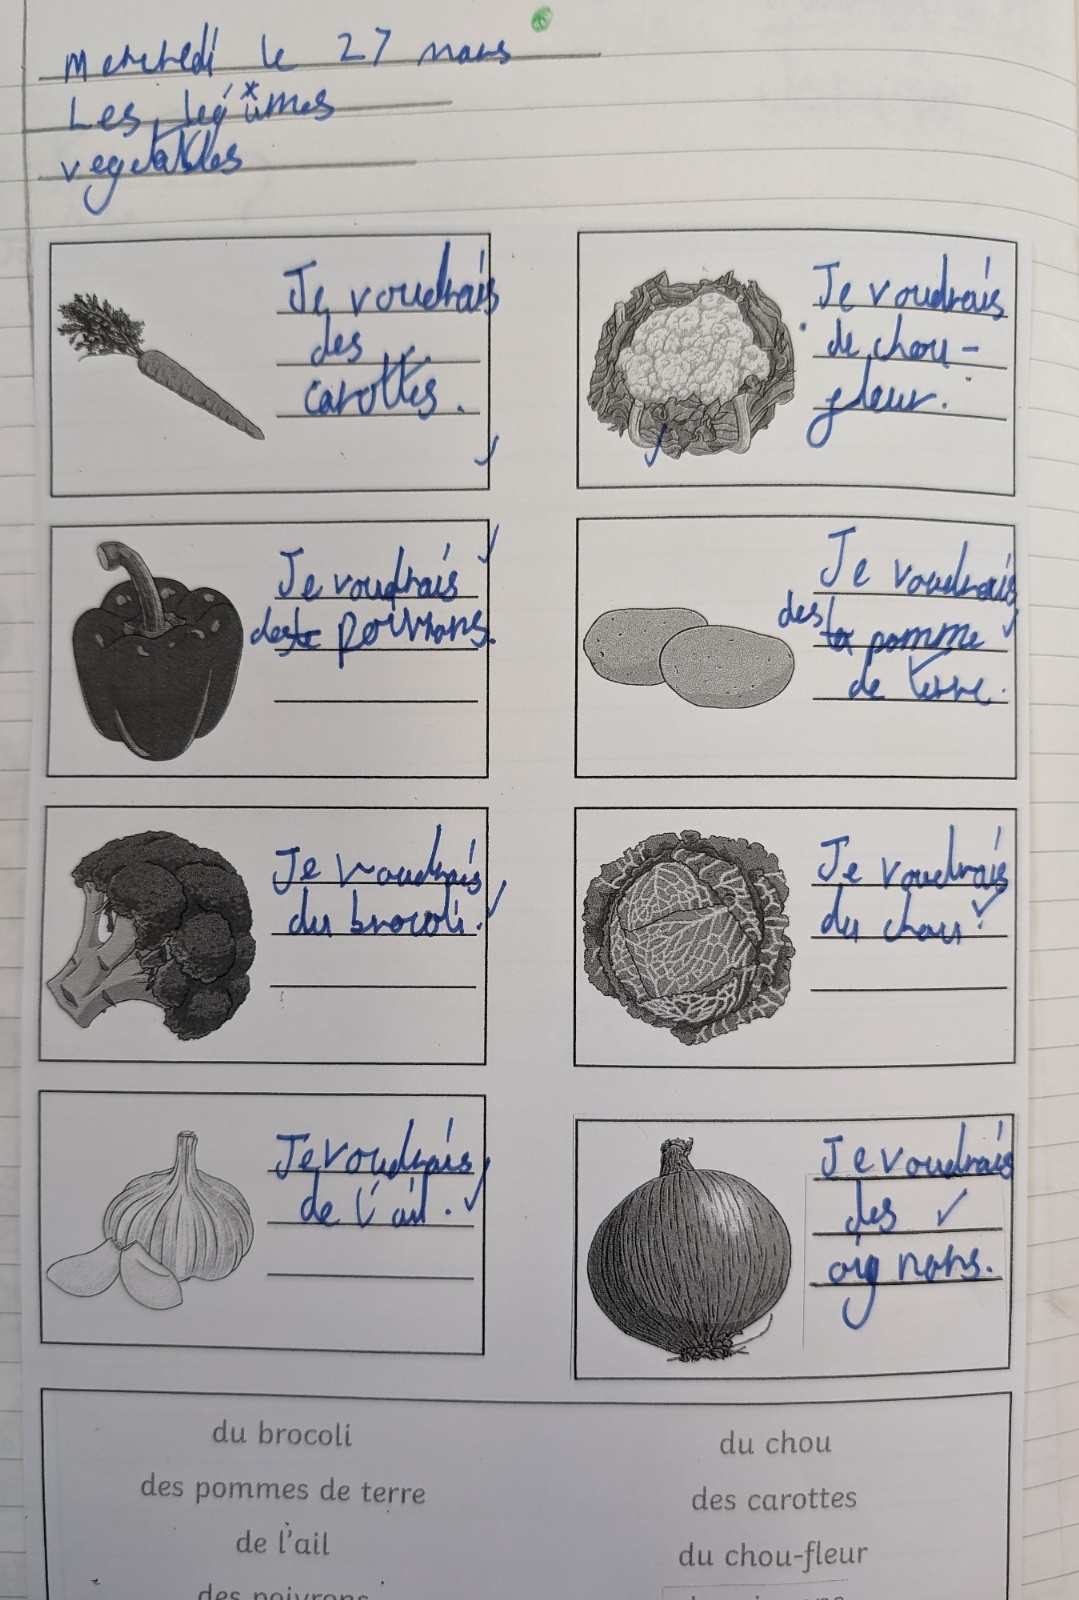 Mercredi le 27 mars
Les légumes
vegetables
Je voudrais
des
carottes.
Je voudrais
de chou-
fleur.
Je voudrais
des poivrons.
Je voudrais
des la pomme
de terre.
Je voudrais
du brocoli.
Je voudrais
du chou
Je voudrais
de l'ail.
Je voudrais
des
oignons.
du brocoli
du chou
des pommes de terre
des carottes
de l'ail
du chou-fleur
des poivrons